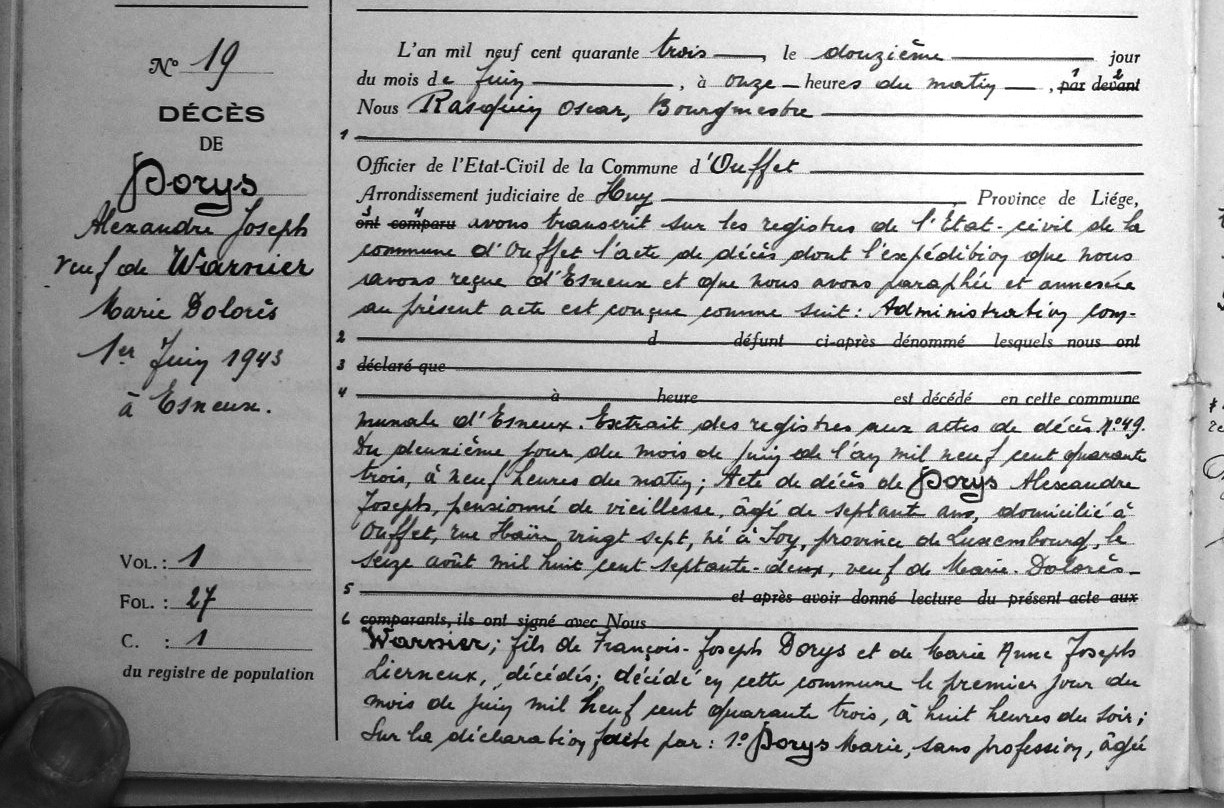 N° 19
DÉCÈS
DE
Dorys
Alexandre Joseph
veuf de Warnier
Marie Dolorès
1er Juin 1943
à Esneux.
VOL. : 1
FOL. : 27
C. : 1
du registre de population
L'an mil neuf cent quarante trois, le douzième jour
du mois de Juin, à onze heures du matin, 1 par 2 devant
Nous Rasquin Oscar, Bourgmestre
1
Officier de l'Etat-Civil de la Commune d'Ouffet
Arrondissement judiciaire de Huy, Province de Liége,
3 ont 4 comparu avons transcrit sur les registres de l'Etat-civil de la
commune d'Ouffet l'acte de décès dont l'expédition que nous
avons reçue d'Esneux et que nous avons paraphée et annexée
au présent acte est conçue comme suit : Administration com-
2 d défunt ci-après dénommé lesquels nous ont
3 déclaré que
4 à heure est décédé en cette commune
munale d'Esneux. Extrait des registres aux actes de décès N°49.
Du deuxième jour du mois de Juin de l'an mil neuf cent quarante
trois, à neuf heures du matin ; Acte de décès de Dorys Alexandre
Joseph, pensionné de vieillesse, âgé de septante ans, domicilié à
Ouffet, rue Haïn vingt sept, né à Soy, province de Luxembourg, le
seize août mil huit cent septante-deux, veuf de Marie-Dolorès
5 et après avoir donné lecture du présent acte aux
6 comparants, ils ont signé avec Nous
Warnier ; fils de François-Joseph Dorys et de Marie Anne Joseph
Lierneux, décédés ; décédé en cette commune le premier jour du
mois de juin mil neuf cent quarante trois, à huit heures du soir ;
Sur la déclaration faite par : 1° Dorys Marie, sans profession, âgée